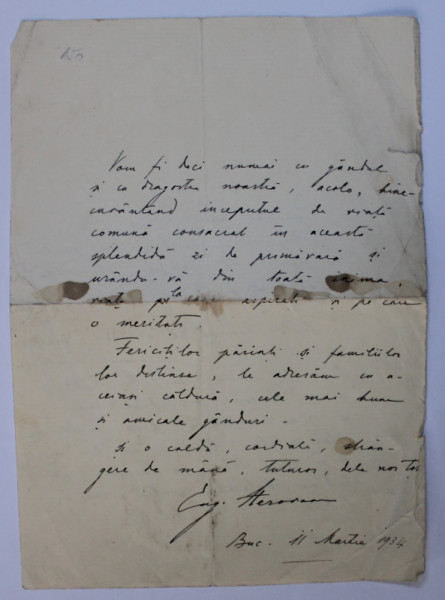 Vom fi deci numai cu gândul
și cu dragostea noastră, acolo, bine-
cuvântând începutul de viață
comună consacrat în această
splendidă zi de primăvară și
urându-vă din toată inima,
viața la care aspirați și pe care
o meritați.
Fericiților părinți și familiilor
lor distinse, le adresăm cu a-
ceiași căldură, cele mai bune
și amicale gânduri.
Și o caldă, cordială, strân-
gere de mână, tuturor, dela noi toți
Eug.
Buc. 11 Martie 1934